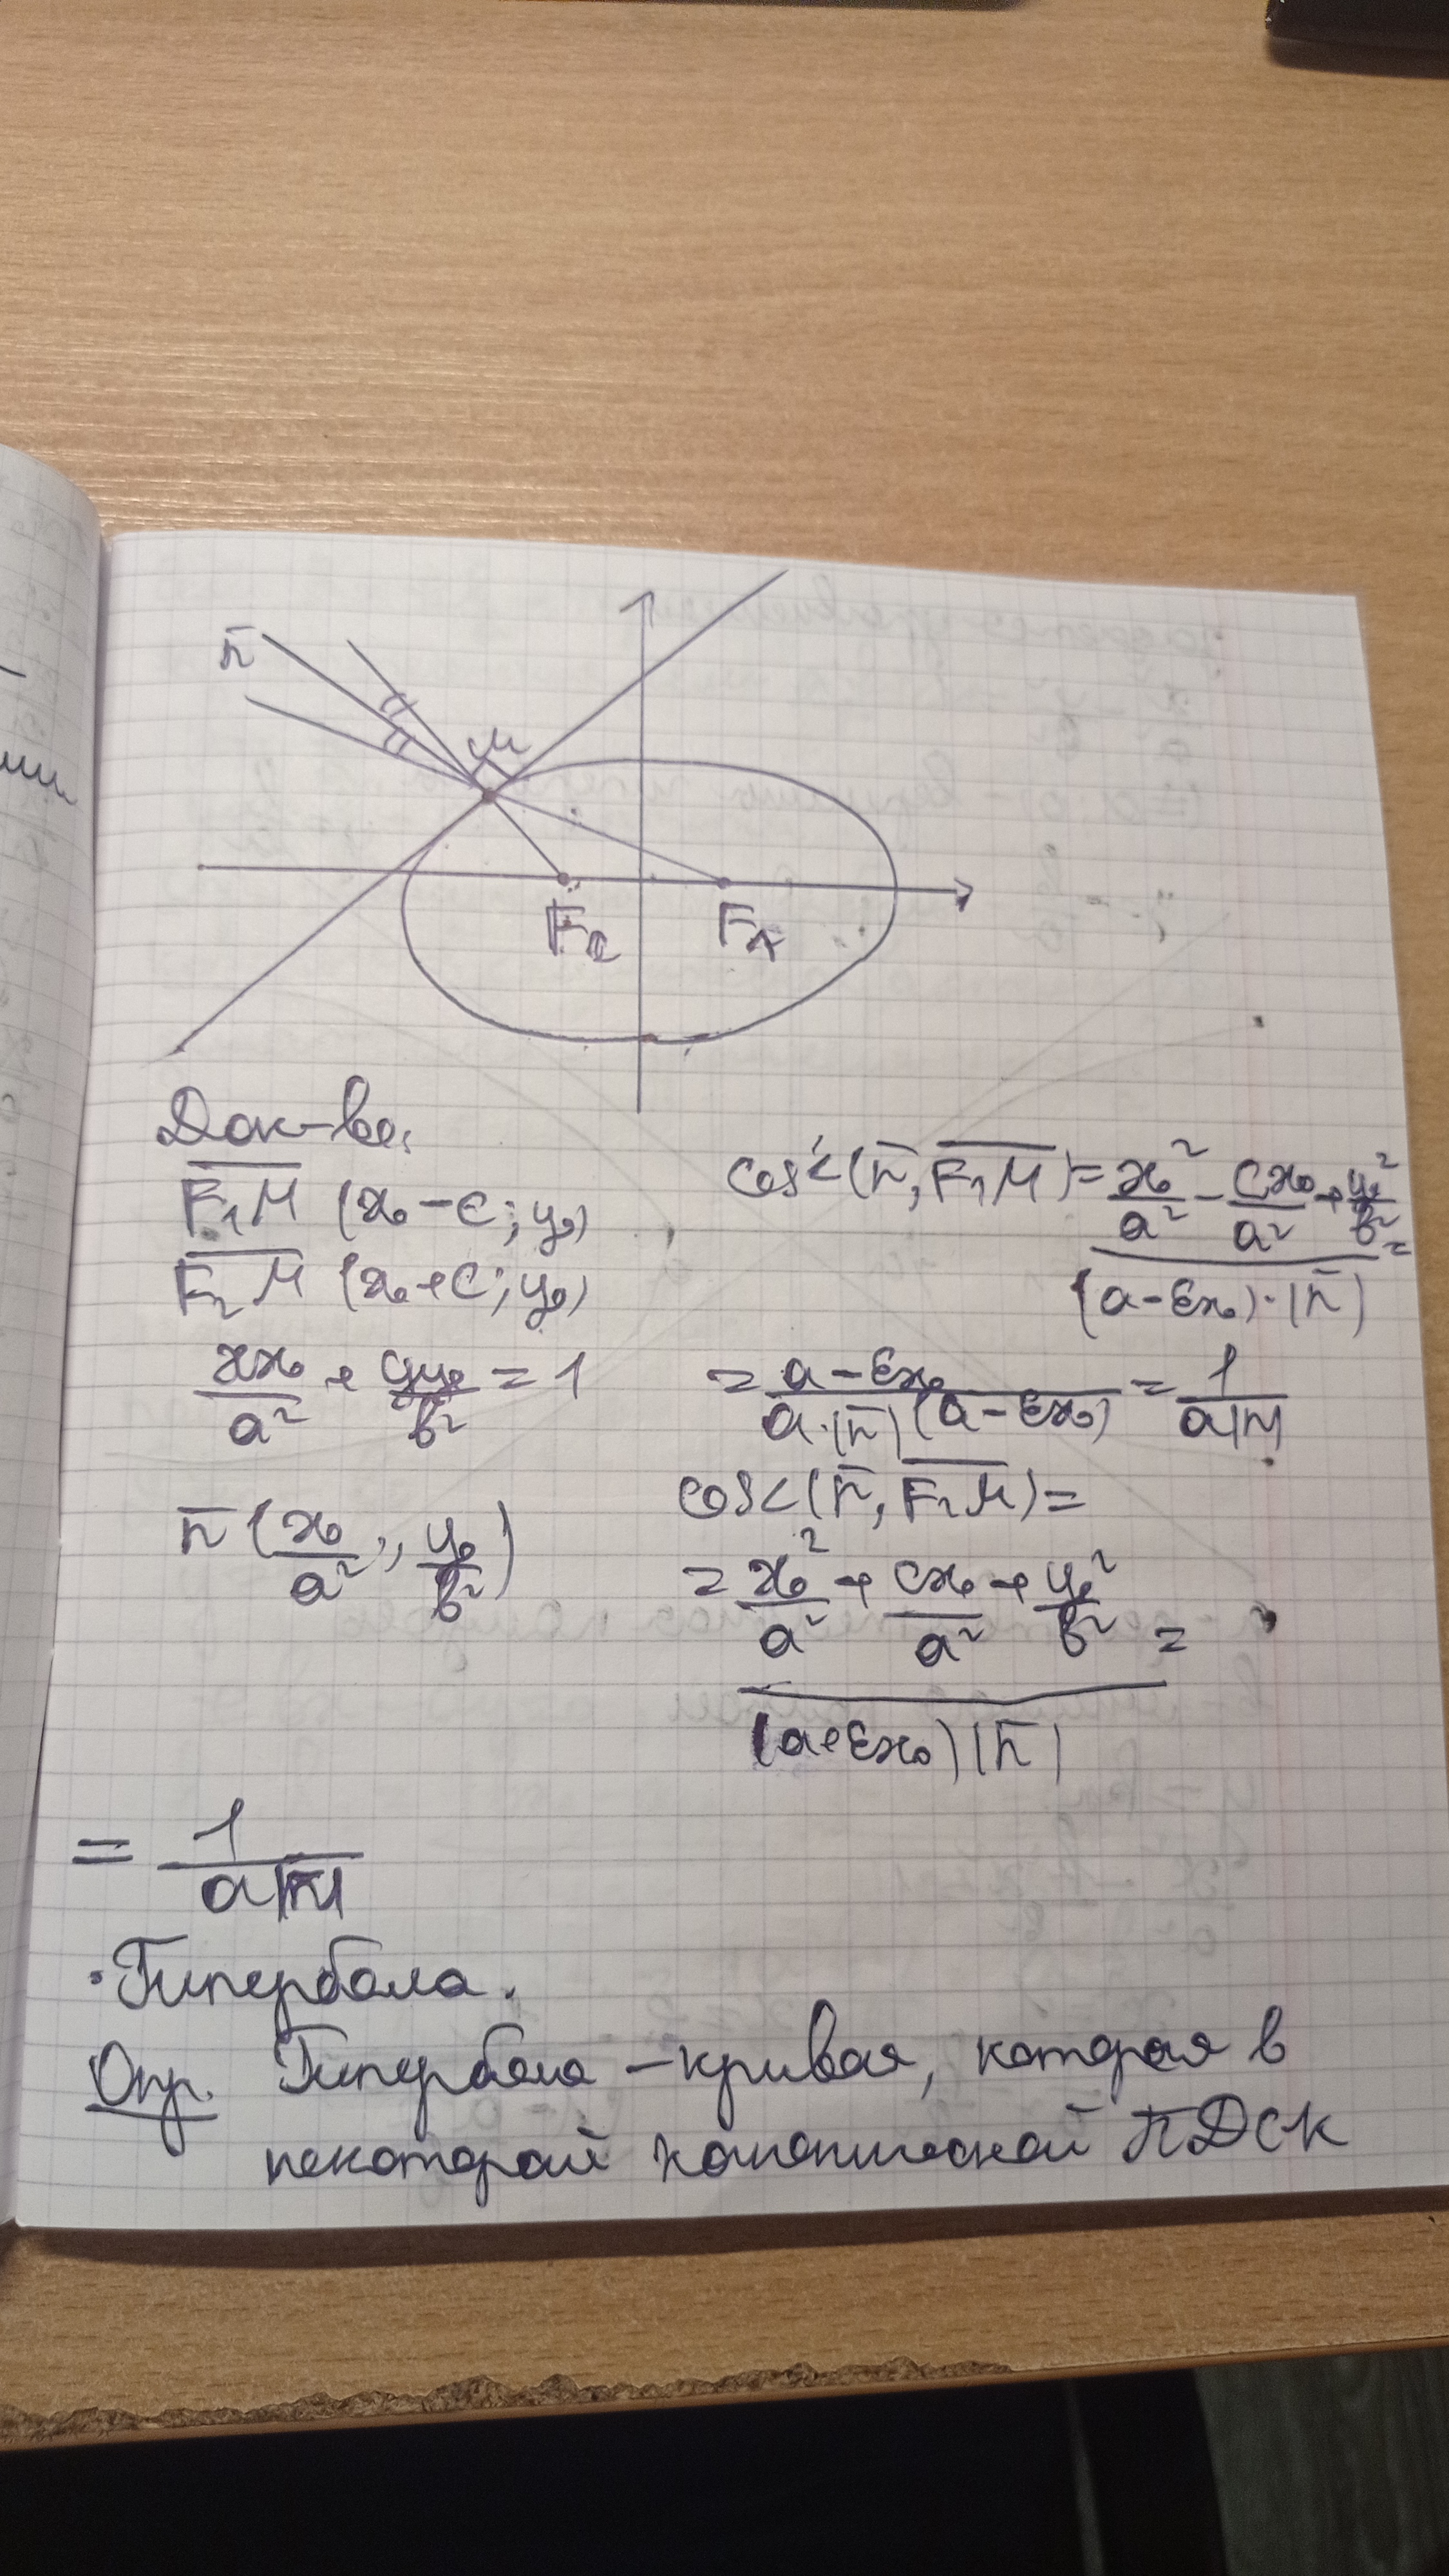 n̄
M
F₂ F₁
Док-во:
F₁M (x₀ - c; y₀)
F₂M (x₀ + c; y₀)
xx₀/a² + yy₀/b² = 1
n̄ (x₀/a²; y₀/b²)
cos∠(n̄, F₁M) = (x₀²/a² - cx₀/a² + y₀²/b²)/((a - εx₀)·|n̄|) =
= (a - εx₀)/(a·|n̄|(a - εx₀)) = 1/(a|n̄|)
cos∠(n̄, F₂M) =
= (x₀²/a² + cx₀/a² + y₀²/b²)/((a + εx₀)|n̄|) =
= 1/(a|n̄|)
· Гипербола.
Опр. Гипербола - кривая, которая в
некоторой канонической ПДСК